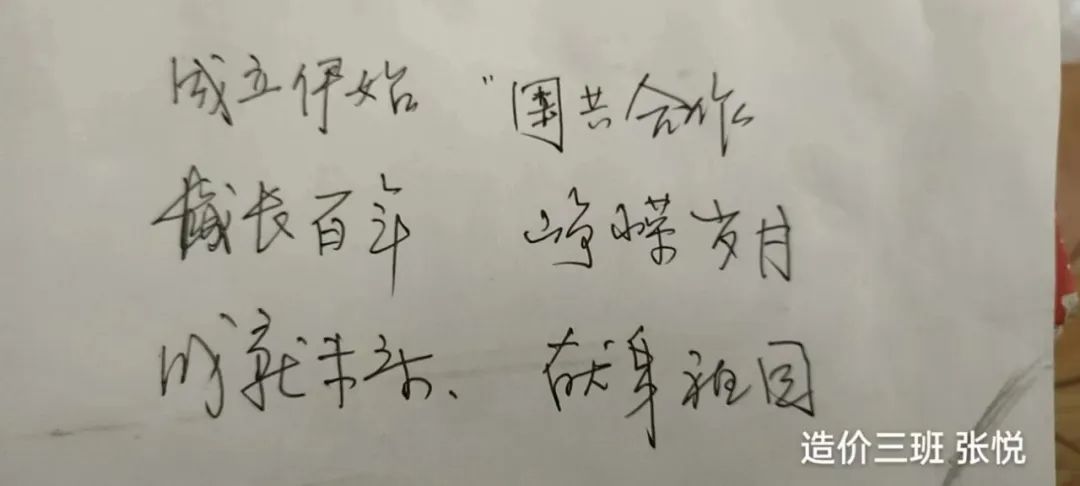 成立伊始 "国共合作
成长百年 峥嵘岁月
成就未来、 献身祖国
造价三班 张悦